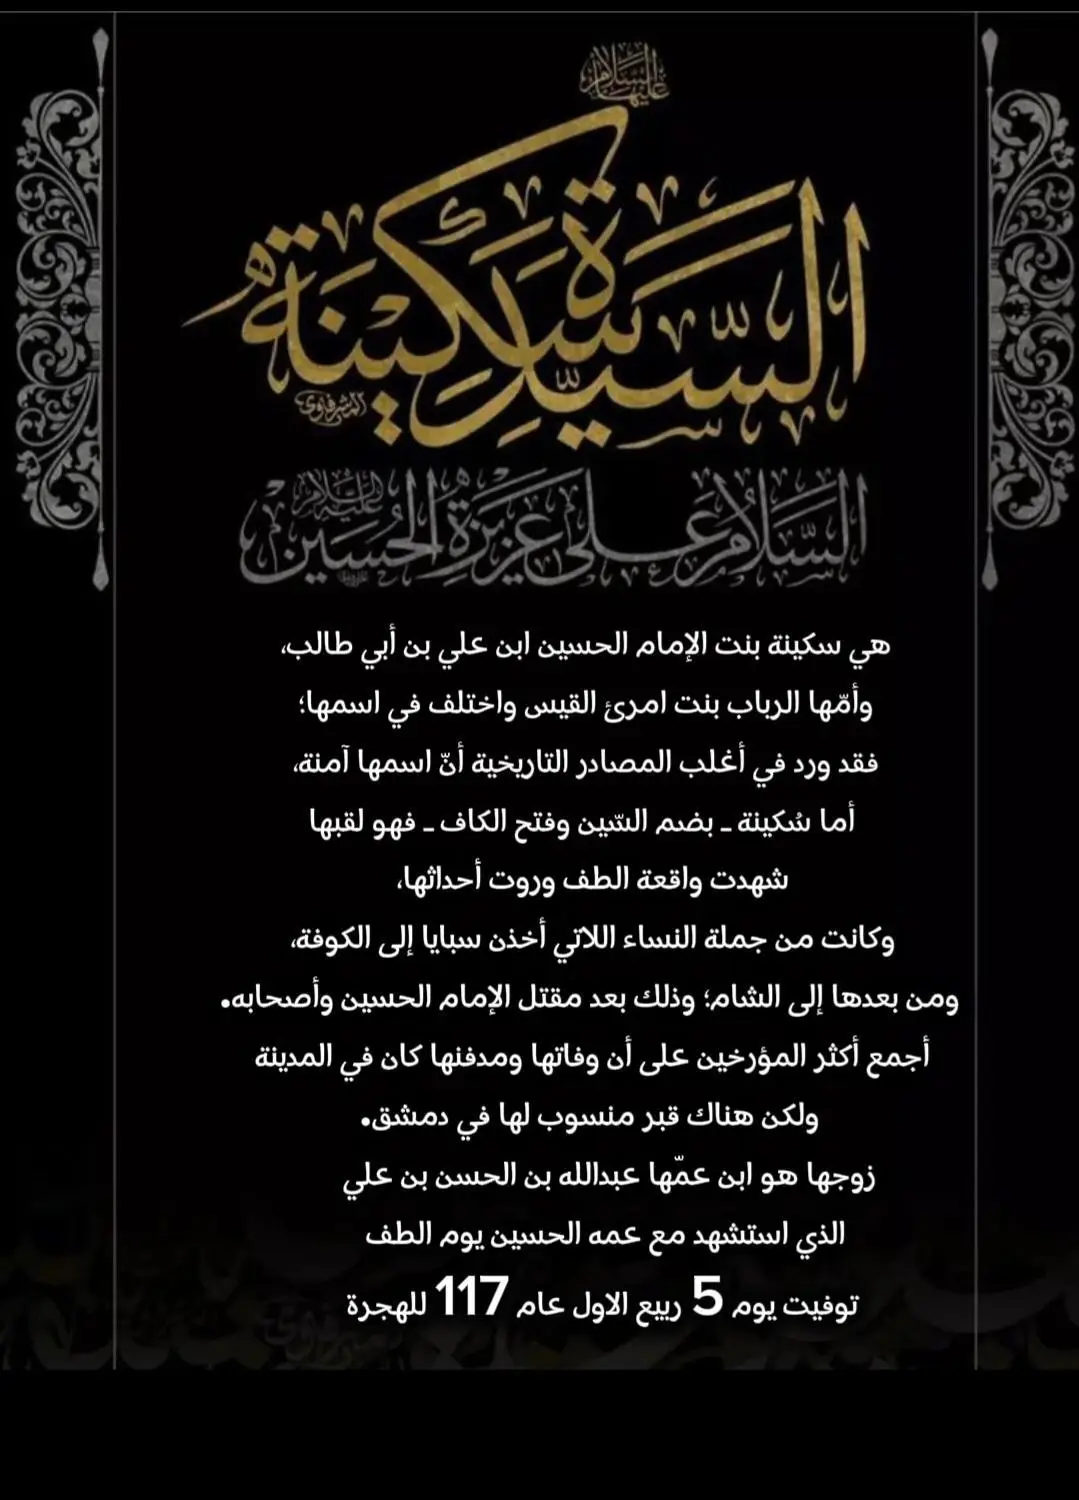 عليها السلام
السيدة سكينة
المشرفاوي
السَّلامُ عَلى عَزيزَةِ الحُسَين عليه السلام
هي سكينة بنت الإمام الحسين ابن علي بن أبي طالب،
وأمّها الرباب بنت امرئ القيس واختلف في اسمها؛
فقد ورد في أغلب المصادر التاريخية أنّ اسمها آمنة،
أما سُكينة ـ بضم السّين وفتح الكاف ـ فهو لقبها
شهدت واقعة الطف وروت أحداثها،
وكانت من جملة النساء اللاتي أخذن سبايا إلى الكوفة،
ومن بعدها إلى الشام؛ وذلك بعد مقتل الإمام الحسين وأصحابه.
أجمع أكثر المؤرخين على أن وفاتها ومدفنها كان في المدينة
ولكن هناك قبر منسوب لها في دمشق.
زوجها هو ابن عمّها عبدالله بن الحسن بن علي
الذي استشهد مع عمه الحسين يوم الطف
توفيت يوم 5 ربيع الاول عام 117 للهجرة